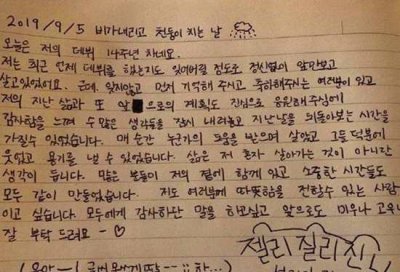 2019/9/5 비가내리고 천둥이 치는 날
오늘은 저의 데뷔 14주년 차네요.
저는 최근 언제 데뷔를 했는지도 잊어버릴 정도로 정신없이 앞만보고
살고있었어요. 근데, 잊지않고 먼저 기억해 주시고 축하해주시는 여러분이 있고
저의 지난 삶과 또 앞으로의 계획도 진심으로 응원해주심에
감사함을 느껴 수 많은 생각들을 잠시 내려놓고 지난날을 되돌아보는 시간을
가질수 있었습니다. 매 순간 누군가의 도움을 받으며 살았고 그들 덕분에
웃었고 용기를 낼 수 있었습니다. 삶은 저 혼자 살아가는 것이 아니란
생각이 듭니다. 많은 분들이 저의 곁에 함께 있고 소중한 시간들도
모두 같이 만들었습니다. 저도 여러분에게 따뜻함을 전할수 있는 사람
이고 싶습니다. 모두에게 감사하단 말을 하고싶고 앞으로도 미우나 고우나
잘 부탁 드려요 - ♡
젤리젤리진!